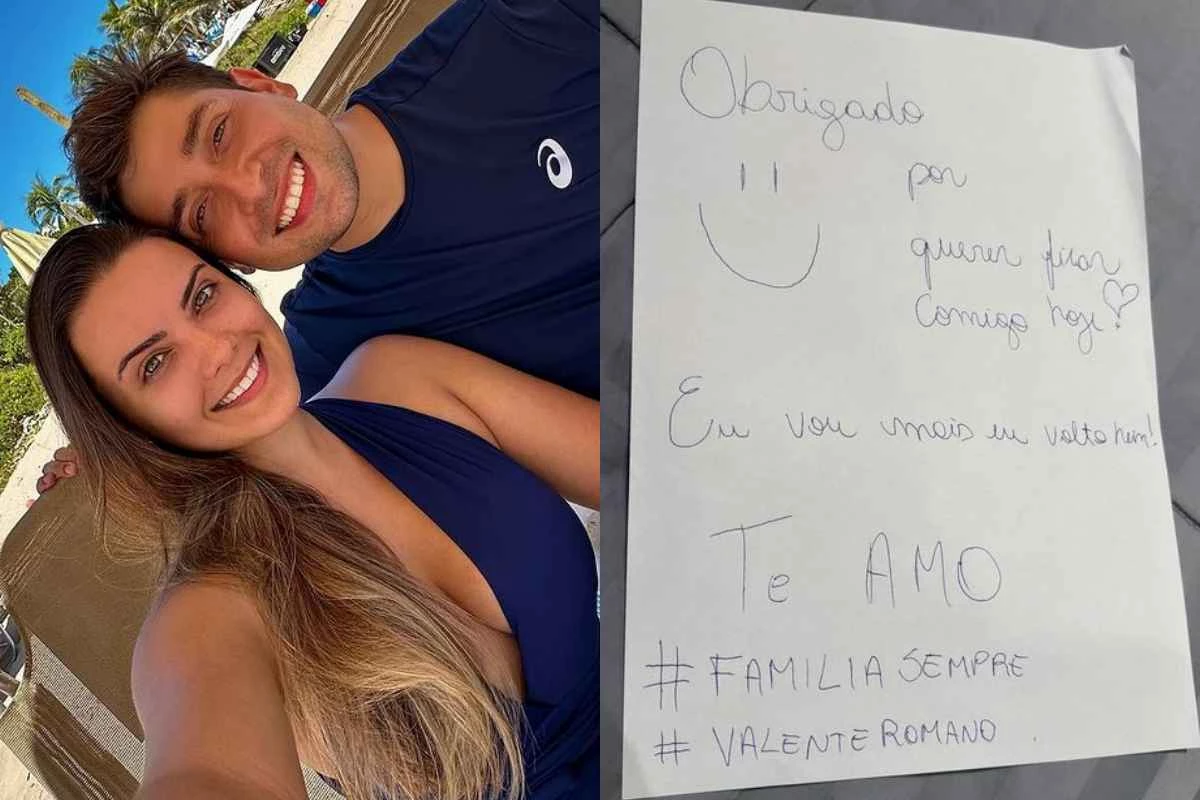 Obrigado
por
querer ficar
comigo hoje!
Eu vou mais eu volto hem!
Te AMO
# FAMILIA SEMPRE
# VALENTE ROMANO